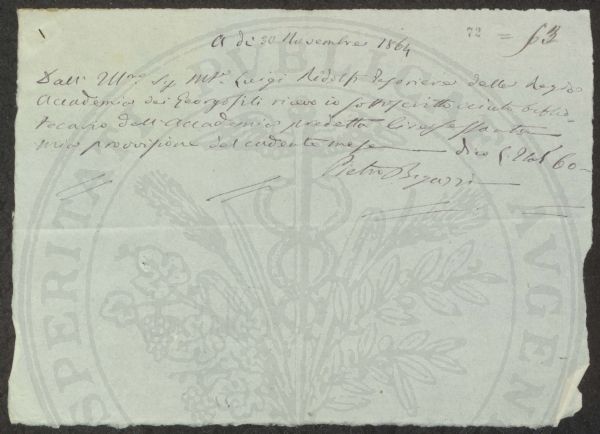 A dì 30 Novembre 1864
72 = 63
Dall' Ill.mo Sig. M.se Luigi Ridolfi Tesoriere della Regia
Accademia dei Georgofili ricevo io sottoscritto aiuto biblio-
tecario dell'Accademia predetta lire sessanta
mia provvisione del cadente mese dico £ Ital 60-
Pietro Bigazzi
PROSPERITA PUBLICA AVGEN